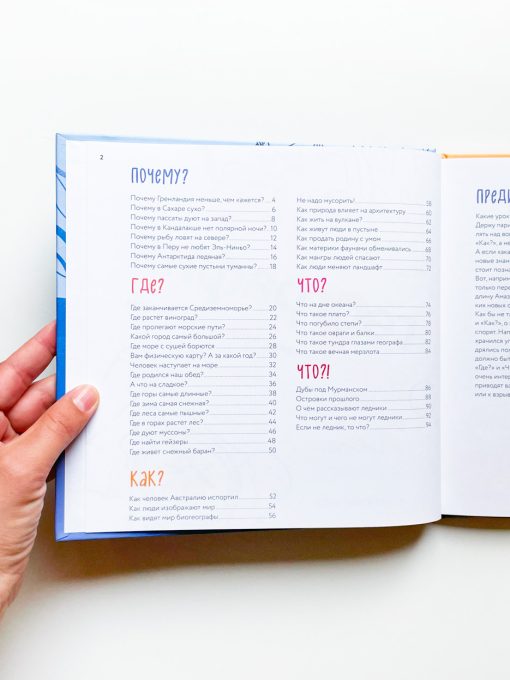 2
ПОЧЕМУ?
Почему Гренландия меньше, чем кажется? 4
Почему в Сахаре сухо? 6
Почему пассаты дуют на запад? 8
Почему в Кандалакше нет полярной ночи? 10
Почему рыбу ловят на севере? 12
Почему в Перу не любят Эль-Ниньо? 14
Почему Антарктида ледяная? 16
Почему самые сухие пустыни туманны? 18
ГДЕ?
Где заканчивается Средиземноморье? 20
Где растет виноград? 22
Где пролегают морские пути? 24
Какой город самый большой? 26
Где море с сушей борются 28
Вам физическую карту? А за какой год? 30
Человек наступает на море 32
Где родился наш обед? 34
А что на сладкое? 36
Где горы самые длинные? 38
Где зима самая снежная? 40
Где леса самые пышные? 42
Где в горах растёт лес? 44
Где дуют муссоны? 46
Где найти гейзеры 48
Где живёт снежный баран? 50
КАК?
Как человек Австралию испортил 52
Как люди изображают мир 54
Как видят мир биогеографы 56
Не надо мусорить! 58
Как природа влияет на архитектуру 60
Как жить на вулкане? 62
Как живут люди в пустыне 64
Как продать родину с умом 66
Как материки фаунами обменивались 68
Как мангры людей спасают 70
Как люди меняют ландшафт 72
ЧТО?
Что на дне океана? 74
Что такое плато? 76
Что погубило степи? 78
Что такое овраги и балки 80
Что такое тундра глазами географа 82
Что такое вечная мерзлота 84
ЧТО?!
Дубы под Мурманском 86
Островки прошлого 88
О чём рассказывают ледники 90
Что могут и чего не могут ледники 92
Если не ледник, то что? 94
ПРЕДИ
Какие урок
Держу пари
лять над во
«Как?», а н
А если кака
новые знан
стоит позна
Вот, наприм
только пере
длину Амаз
Как бы не т
и «Как?», о
спорят. Нап
крачился уг
дрялись пол
должно быт
«Где?» и «Ч
очень интер
приводят в
или к взрыв